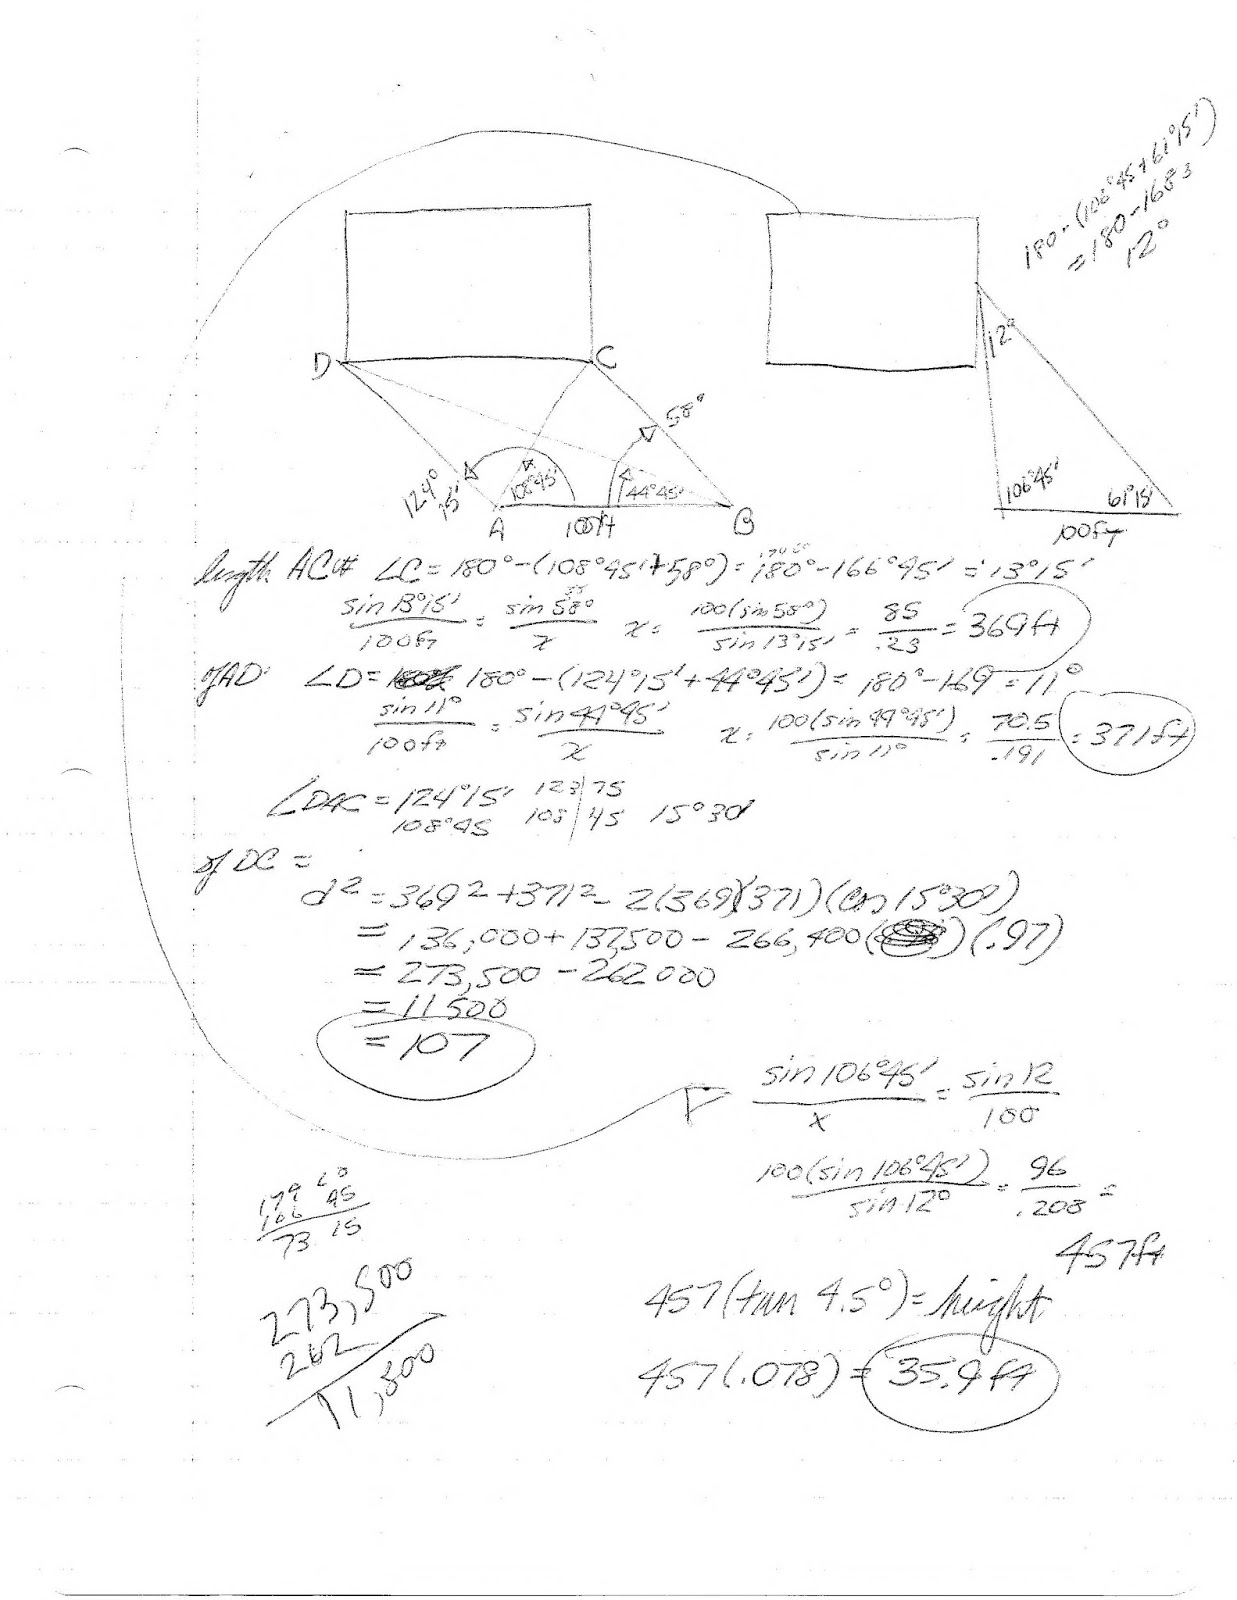 180-(106°45+61°15')
=180-168
12°
D
C
12°
58°
124°
15'
108°45'
44°45'
106°45'
61°15'
A
100ft
B
100ft
length AC# ∠C=180°-(108°45'+58°)=180°-166°45'=13°15'
sin13°15'/100ft = sin58°/x x= 100(sin58°)/sin13°15' = 85/.23 = 369ft
of AD: ∠D= 180°-(124°15'+44°45')=180°-169=11°
sin11°/100ft = sin44°45'/x x= 100(sin44°45')/sin11° = 70.5/.191 = 371ft
∠DAC=124°15' 123|75
108°45 108|45 15°30
of DC =
d²=369²+371²-2(369)(371)(cos 15°30°)
=136,000+137,500-266,400( )(.97)
=273,500-262000
=11500
=107
sin106°45'/x = sin12/100
100(sin106°45')/sin12° = 96/.208 =
457ft
179 60
166 45
73 15
273,500
262
11,500
457(tan 4.5°)=height
457(.078)= 35.9ft